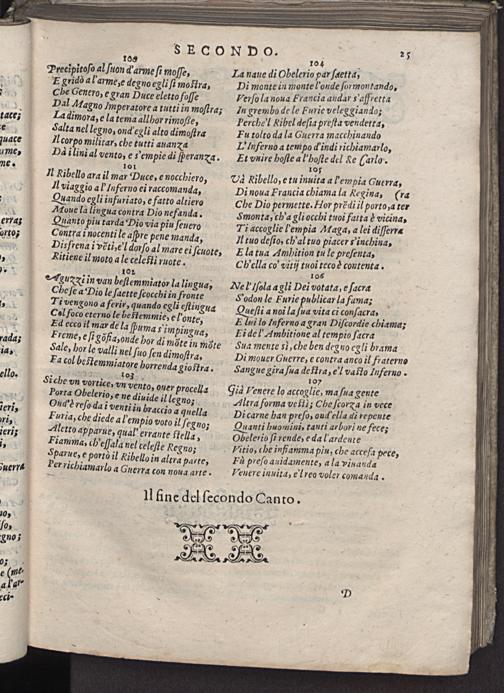 SECONDO. 25
100
Precipitoso al suon d'arme si mosse,
E gridò a l'arme, e degno egli si mostra,
Che Genero, e gran Duce eletto fosse
Dal Magno Imperatore a tutti in mostra;
La dimora, e la tema allhor rimosse,
Salta nel legno, ond'egli alto dimostra
Il corpo militar, che tutti auanza
Dà i lini al vento, e s'empie di speranza.
101
Il Ribello ara il mar Duce, e nocchiero,
Il viaggio a l'Inferno ei raccomanda,
Quando egli infuriato, e fatto altiero
Moue la lingua contra Dio nefanda.
Quanto piu tarda Dio via piu seuero
Contra i nocenti le aspre pene manda,
Disfrena i vēti, e'l dorso al mare ei scuote,
Ritiene il moto a le celesti ruote.
102
Aguzzi in van bestemmiator la lingua,
Che se a Dio le saette scocchi in fronte
Ti vengono a ferir, quando egli estingua
Col foco eterno le bestemmie, e l'onte,
Ed ecco il mar de la spuma s'impingua,
Freme, e si gōfia, onde hor di mōte in mōte
Sale, hor le valli nel suo sen dimostra,
Fa col bestemmiatore horrenda giostra.
103
Si che vn vortice, vn vento, ouer procella
Porta Obelerio, e ne diuide il legno;
Ond'è reso da i venti in braccio a quella
Furia, che diede al empio voto il segno;
Aletto apparue, qual' errante stella,
Fiamma, ch'essala nel celeste Regno;
Sparue, e portò il Ribello in altra parte,
Per richiamarlo a Guerra con noua arte.
104
La naue di Obelerio par saetta,
Di monte in monte l'onde sormontando,
Verso la noua Francia andar s'affretta
In grembo de le Furie veleggiando;
Perche'l Ribel desia presta vendetta,
Fu tolto da la Guerra macchinando
L'Inferno a tempo d'indi richiamarlo,
Et vnire hoste a l'hoste del Re Carlo.
105
Và Ribello, e tu inuita a l'empia Guerra,
Di noua Francia chiama la Regina, (ra
Che Dio permette. Hor prēdi il porto, a ter
Smonta, ch'a gli occhi tuoi fatta è vicina,
Ti accoglie l'empia Maga, a lei disserra
Il tuo desio, ch'al tuo piacer s'inchina,
E la tua Ambition tu le presenta,
Ch'ella co' vitij tuoi teco è contenta.
106
Ne l'Isola agli Dei votata, e sacra
S'odon le Furie publicar la fama;
Questi a noi la sua vita ci consacra,
E lui lo Inferno a gran Discordie chiama;
Ei de l'Ambitione al tempio sacra
Sua mente sì, che ben degno egli brama
Di mouer Guerre, e contra anco il fraterno
Sangue gira sua destra, e'l vasto Inferno.
107
Già Venere lo accoglie, ma sua gente
Altra forma vestì; Che scorza in vece
Di carne han preso, ond'ella di repente
Quanti huomini, tanti arbori ne fece;
Obelerio si rende, e da l'ardente
Vitio, che infiamma piu, che accesa pece,
Fù preso auidamente, a la viuanda
Venere inuita, e'l reo voler comanda.
Il fine del secondo Canto.
D